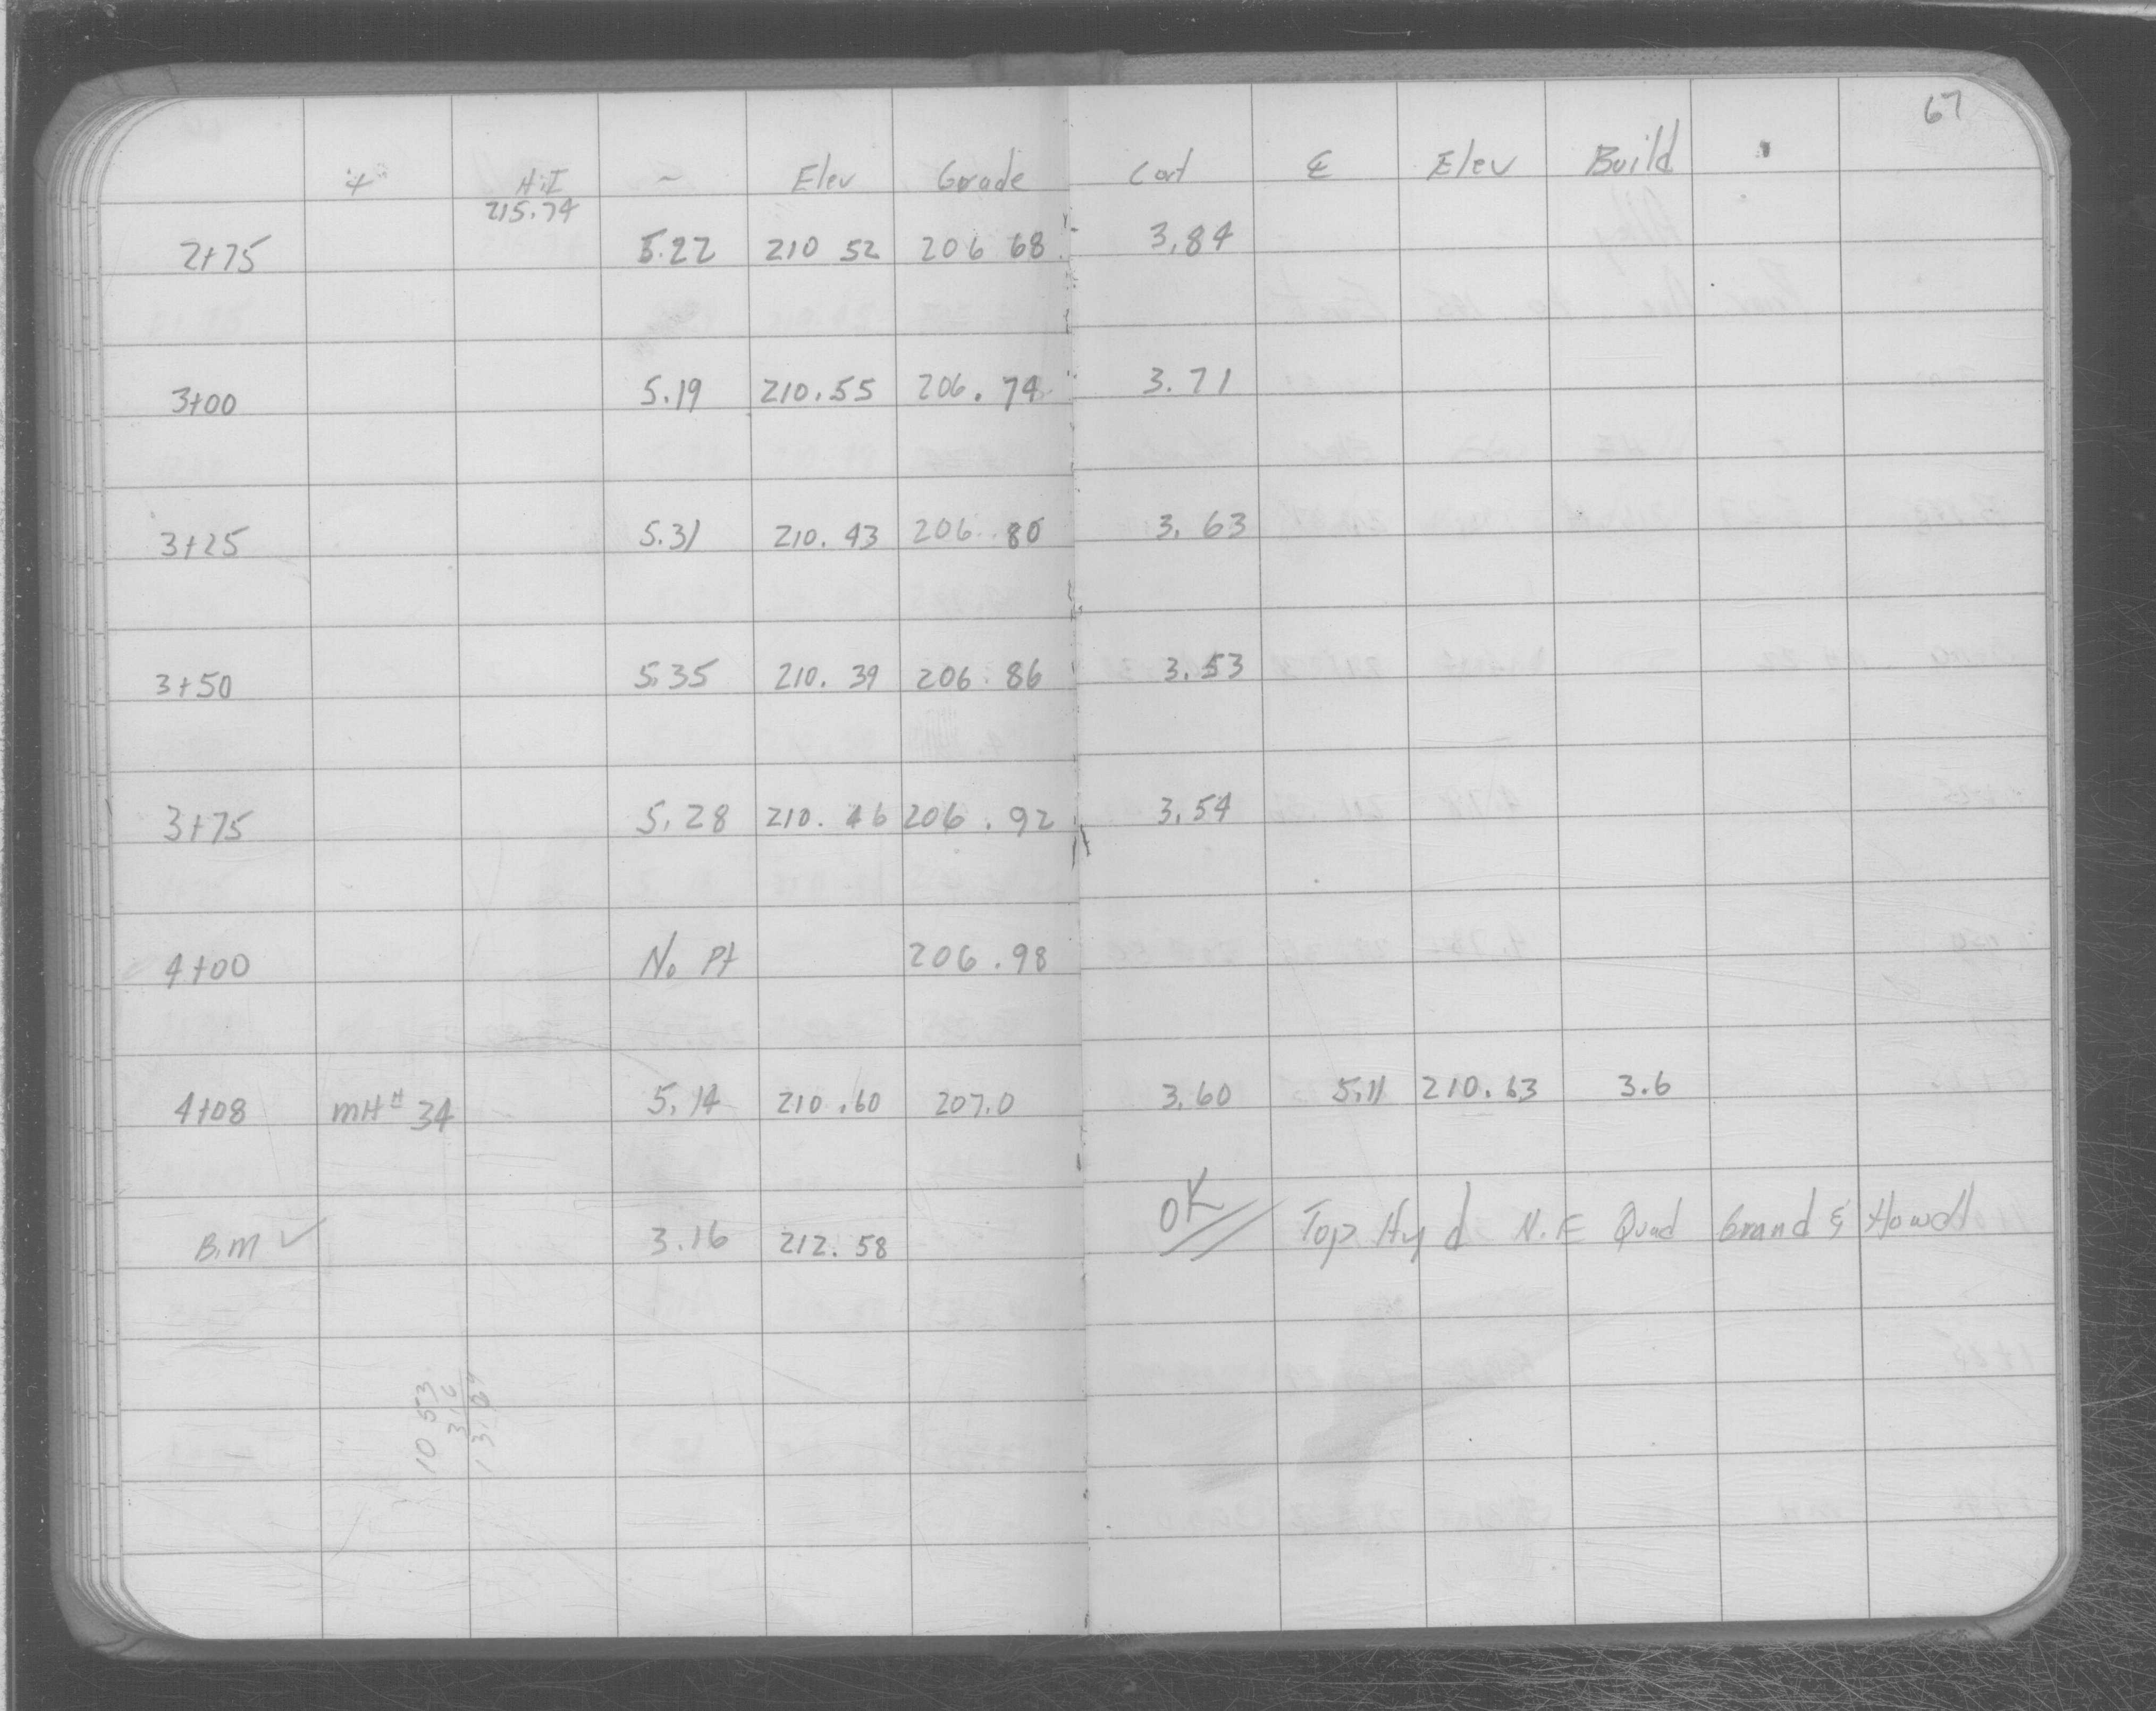 67
+ H.I - Elev Grade Cut ℄ Elev Build
215.74
2+75 5.22 210 52 206 68 3.84
3+00 5.19 210.55 206.74 3.71
3+25 5.31 210.43 206.80 3.63
3+50 5.35 210.39 206.86 3.53
3+75 5.28 210.46 206.92 3.54
4+00 No Pt 206.98
4+08 MH# 34 5.14 210.60 207.0 3.60 5.11 210.63 3.6
B.M ✓ 3.16 212.58 OK Top Hyd N.E Quad Grand & Howell
10 53